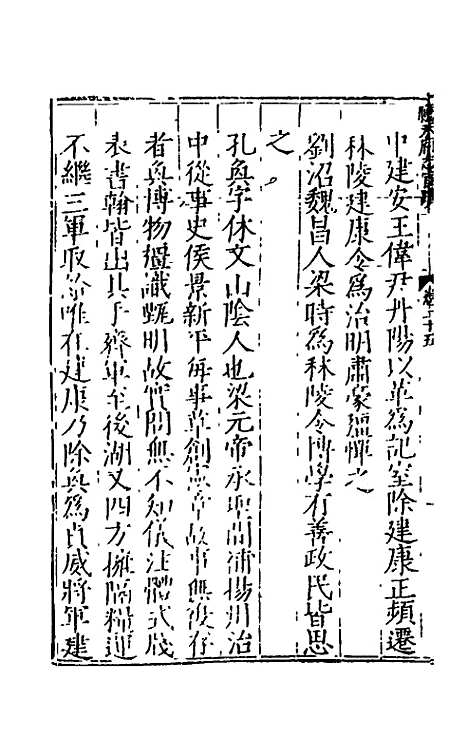 中建安王偉尹丹陽以革為記室除建康正頻遷
秣陵建康令為治明肅豪彊憚之
劉沼魏昌人梁時為秣陵令博學有善政民皆思
之
孔奐字休文山陰人也梁元帝承聖間補揚州治
中從事史侯景新平每事草創憲章故事無復存
者奐博物彊識甄明故實問無不知儀注體式牋
表書翰皆出其手齊軍至後湖又四方擁隔糧運
不繼三軍取給唯在建康乃除奐為貞威將軍建
卷二十五